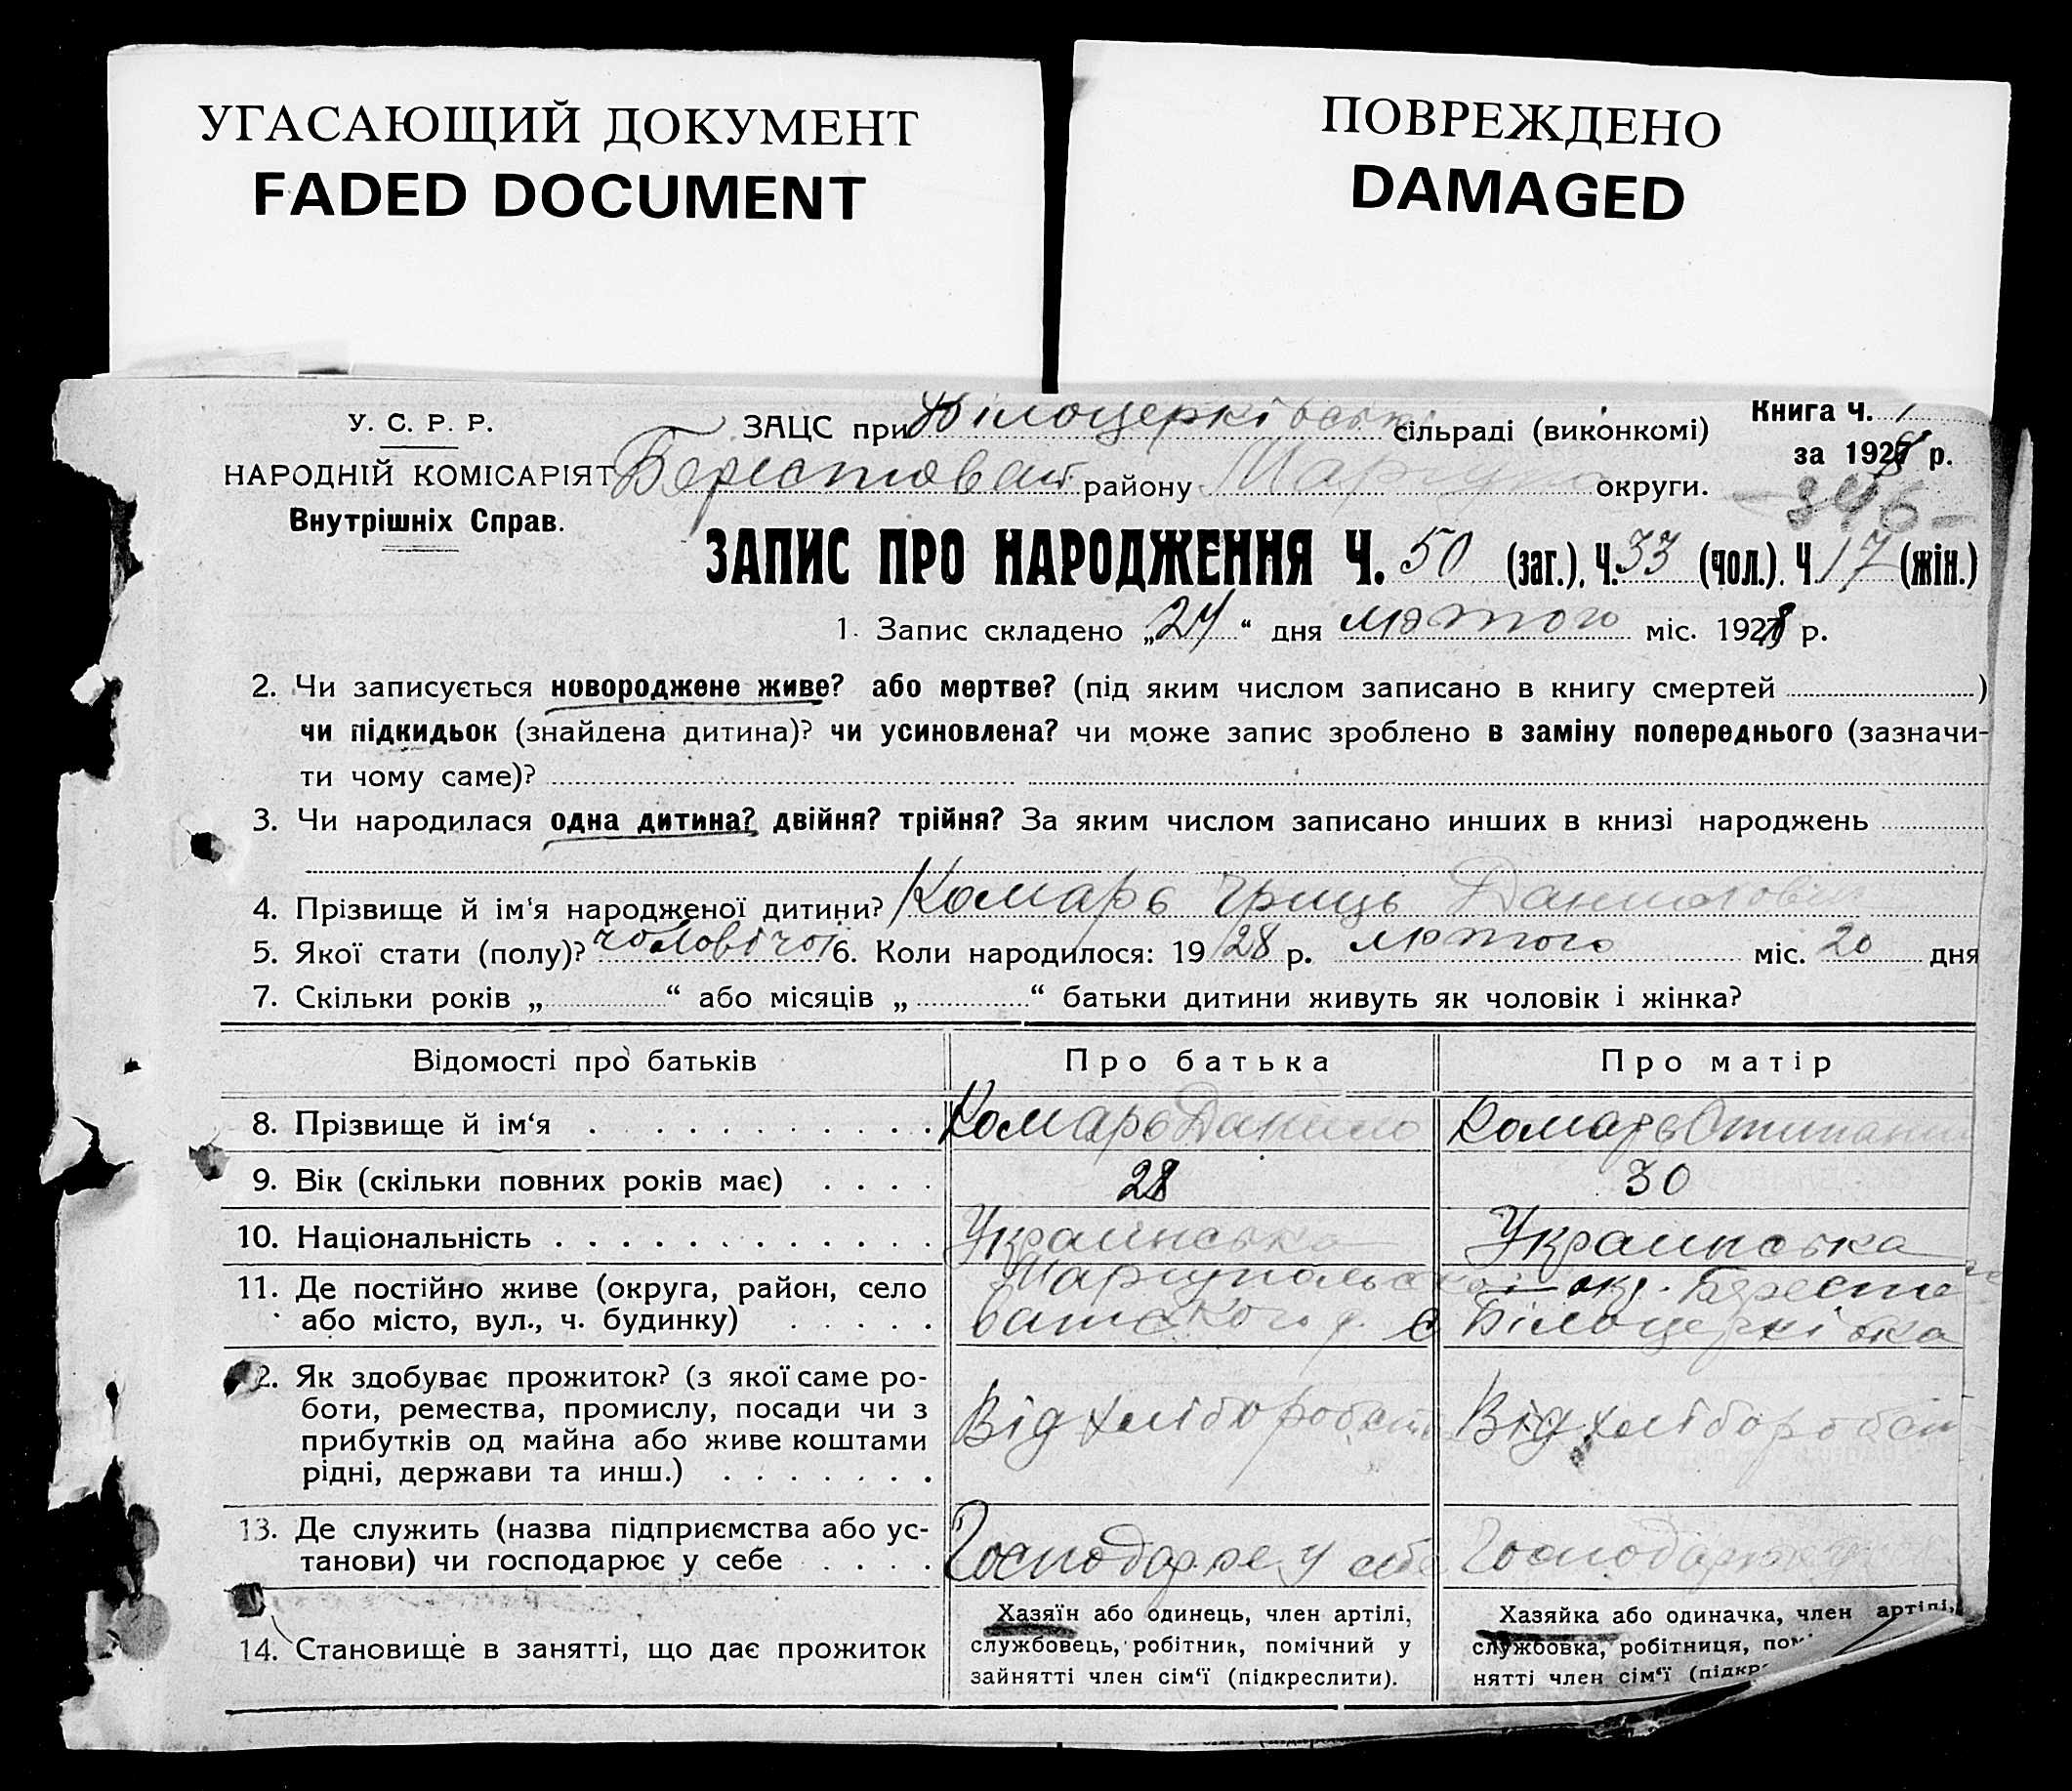 УГАСАЮЩИЙ ДОКУМЕНТ
FADED DOCUMENT
ПОВРЕЖДЕНО
DAMAGED
У. С. Р. Р.
НАРОДНІЙ КОМІСАРІЯТ
Внутрішніх Справ.
ЗАЦС при Білоцерківськ сільраді (виконкомі)
Книга ч. 1
за 1928 р.
Берестоват району Мариуп округи.
-346-
ЗАПИС ПРО НАРОДЖЕННЯ Ч. 50 (заг.), Ч. 33 (чол.). Ч 17 (жін.)
1. Запис складено „24“ дня лютого міс. 1928 р.
2. Чи записується новороджене живе? або мертве? (під яким числом записано в книгу смертей )
чи підкидьок (знайдена дитина)? чи усиновлена? чи може запис зроблено в заміну попереднього (зазначи-
ти чому саме)?
3. Чи народилася одна дитина? двійня? трійня? За яким числом записано инших в книзі народжень
4. Прізвище й ім'я народженої дитини? Комарь Гриць Данилович
5. Якої стати (полу)? чоловічої 6. Коли народилося: 1928 р. лютого міс. 20 дня
7. Скільки років „ “ або місяців „ “ батьки дитини живуть як чоловік і жінка?
Відомості про батьків Про батька Про матір
8. Прізвище й ім‘я Комарь Данило Комарь
9. Вік (скільки повних років має) 28 30
10. Національність Украинська Украинська
11. Де постійно живе (округа, район, село
або місто, вул., ч. будинку)
Мариупольскоі окр. Бересто
ватского р. с Білоцерківка
12. Як здобуває прожиток? (з якої саме ро-
боти, ремества, промислу, посади чи з
прибутків од майна або живе коштами
рідні, держави та инш.)
Від хліборобств Від хліборобст
13. Де служить (назва підприємства або ус-
танови) чи господарює у себе
Господарює у себе Господарює у
14. Становище в занятті, що дає прожиток
Хазяїн або одинець, член артілі,
службовець, робітник, помічний у
зайнятті член сім‘ї (підкреслити).
Хазяйка або одиначка, член артілі,
службовка, робітниця, пом
нятті член сім‘ї (підкр